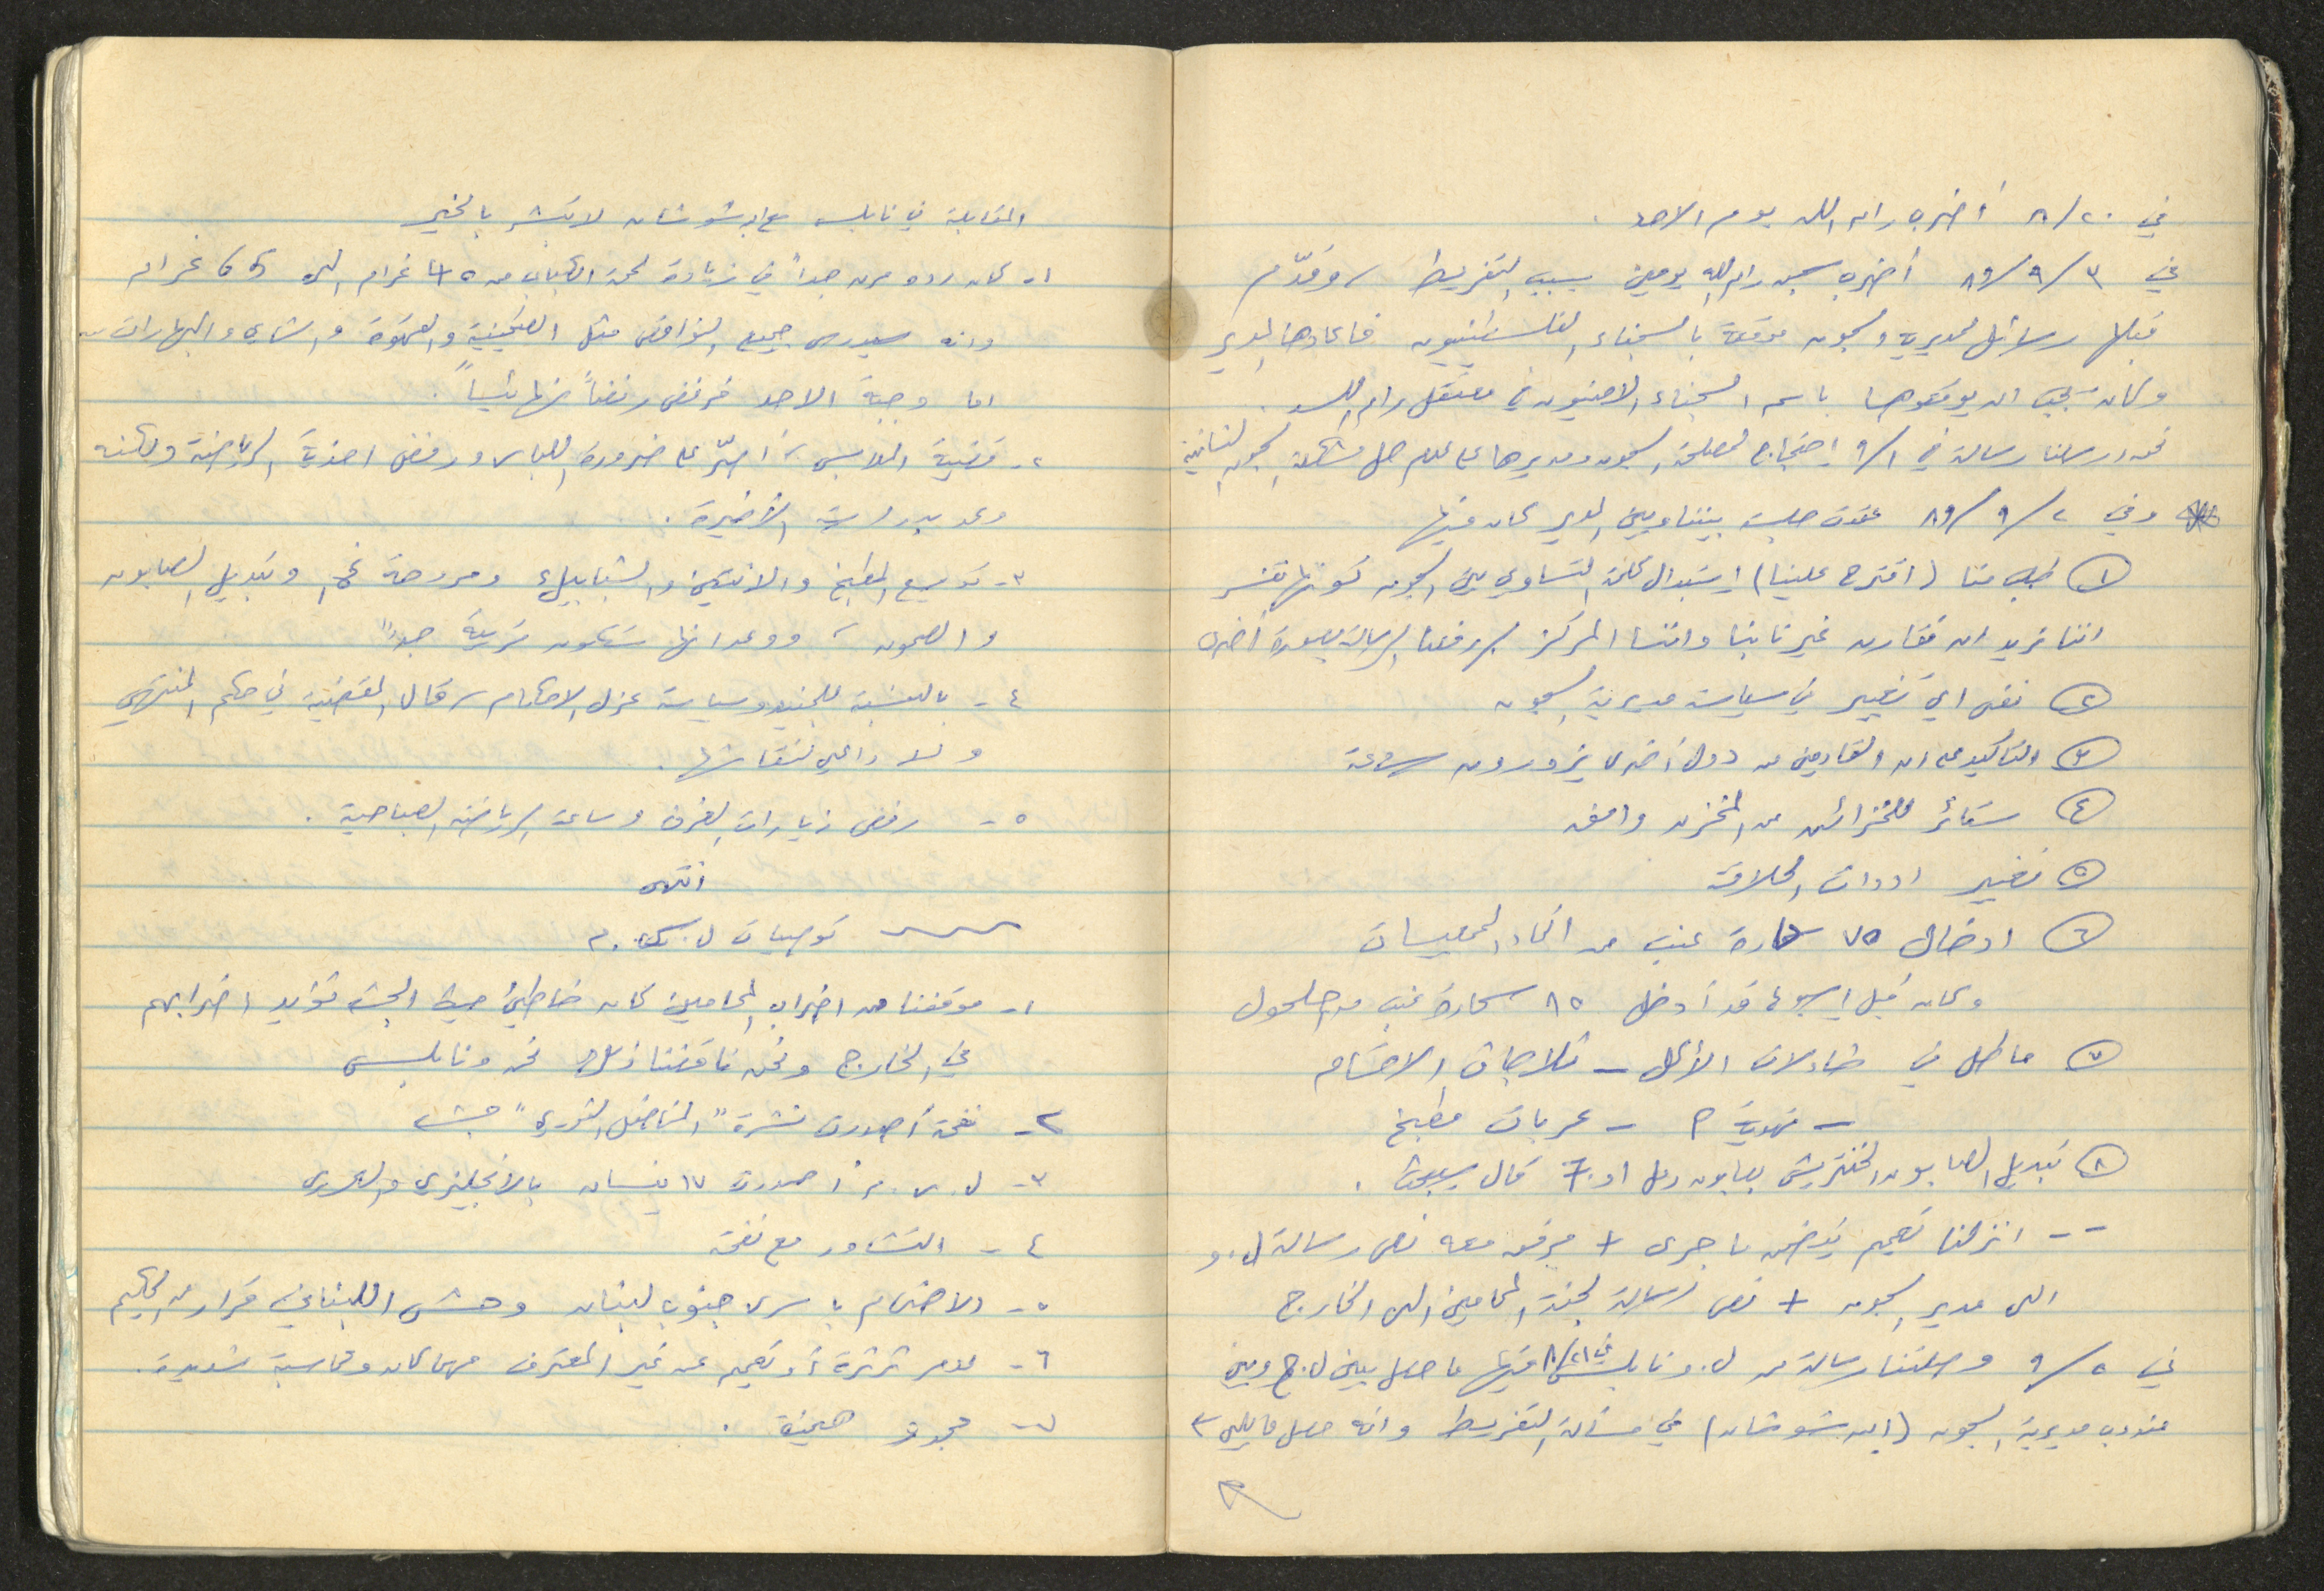 في ٢٠/٨ أضرب رام الله يوم الاحد.
في ٣/٩/٨٩ أضرب سجن رام الله يومين بسبب التفريط، وقدّم
قبلها رسائل لمديرية السجون موقعة بالسجناء الفلسطينيون فأعادها المدير
وكان يجب ان يوقعوها باسم السجناء الامنيون في معتقل رام الله.
نحن ارسلنا رسالة في ١/٩ احتجاج لمصلحة السجون ومديرها على عدم حل مشكلة السجون الثانية
وفي ٢/٩/٨٩ عقدت جلسة بيننا وبين المدير كان فيها
① طلب منا (اقترح علينا) استبدال كلمة التساوي بين السجون كونها تفسر
اننا نريد ان نقارن غيرنا بنا واننا المركز، رفعنا الرسالة بصورة أخرى
② نفى اي تغيير في سياسة مديرية السجون
③ التأكيد على ان القادمين من دول أخرى يزورون ساعة
④ ستائر للخزائن من المخزن وافق
⑤ تغيير ادوات الحلاقة
⑥ ادخال ٧٥ سحارة عنب من اتحاد الجمعيات
وكان قبل اسبوع قد أدخل ٨٥ سحارة عنب من حلحول
⑦ ماطل في طاولات الأكل - ثلاجات الاقسام
- تهوية - عربات مطبخ
⑧ تبديل الصابون بصابون او قال سيبحث.
-- انزلنا تعميم يتضمن ما جرى + مرفق معه نص رسالة ل.و
الى مدير السجون + نص رسالة لجنة المحامين الى الخارج
في ٥/٩ وصلتنا رسالة من ل.و نابلس في ٢١/٨ فيها ما حصل بين ل.ح وبين
مندوب مديرية السجون (ابن شوشان) في مسألة التفريط وانه حصل ما يلي
المقابلة في نابلس مع ابن شوشان لا تبشر بالخير
١- كان رده مرن جداً في زيادة لحمة الكباب من ٤٥ غرام الى ٦٥ غرام
وانه سيدرس جميع النواقص مثل الطحينية والقهوة والشاي والبهارات
اما وجبة الاحد فرفض رفضاً نهائياً.
٢- قضية الملابس، أصرّ على ضرورة اللباس ورفض احذية الرياضة ولكنه
وعد بدراسة الأخيرة.
٣- توسيع المطبخ والانتكين والشبابيك ومروحة وتبديل الصابون
والصحون، ووعد انها ستكون قريبة جداً
٤- بالنسبة للجنيد وسياسة عزل الاحكام، قال القضية في حكم المنتهي
ولا داعي لنقاشها.
٥- رفض زيارات الغرف وساعة الرياضة الصباحية.
انتهى
توصيات ل. م
١- موقفنا من اضراب المحامين كان خاطئ حيث الجبهة تؤيد اضرابهم
في الخارج ونحن ناقضنا ذلك نحن ونابلس
٢- نفحة أصدرت نشرة "المناضل الثوري"
٣- ل.م. أصدرت ١٧ نيسان بالانجليزي والعبري
٤- التشاور مع نفحة
٥- الاهتمام باسرى جنوب لبنان وحتى اللبناني قرار من الحكيم
٦- عدم ثرثرة أو تعميم عن غير المعترف مهما كان ومحاسبة شديدة.
٧-